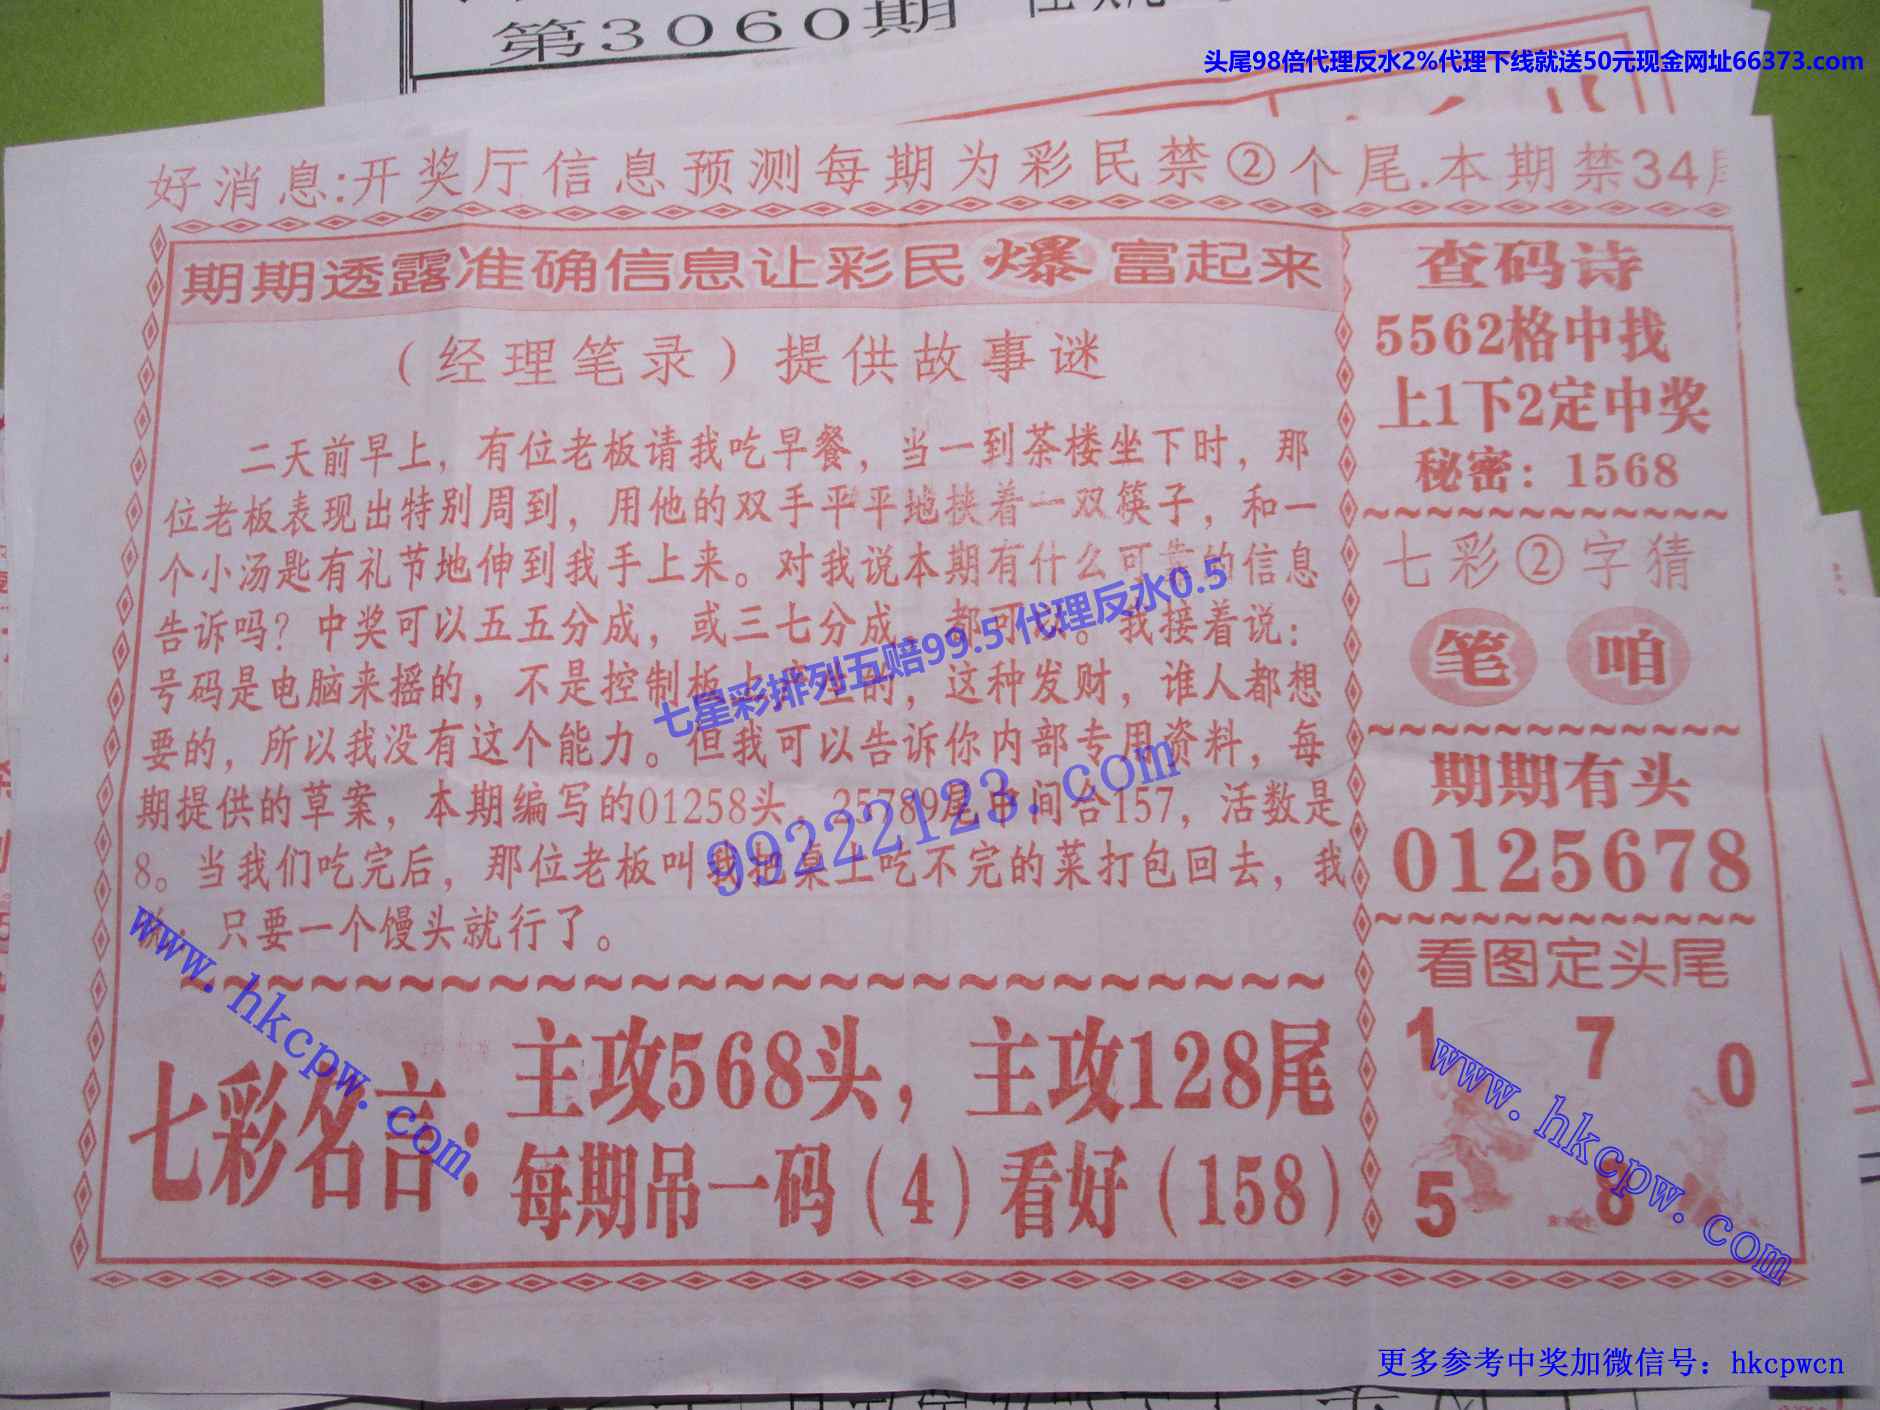 第3060期
头尾98倍代理反水2%代理下线就送50元现金网址66373.com
好消息:开奖厅信息预测每期为彩民禁②个尾.本期禁34尾
期期透露准确信息让彩民爆富起来
（经理笔录）提供故事谜
二天前早上，有位老板请我吃早餐，当一到茶楼坐下时，那
位老板表现出特别周到，用他的双手平平地挟着一双筷子，和一
个小汤匙有礼节地伸到我手上来。对我说本期有什么可靠的信息
告诉吗？中奖可以五五分成，或三七分成，都可以。我接着说：
号码是电脑来摇的，不是控制板上产生的，这种发财，谁人都想
要的，所以我没有这个能力。但我可以告诉你内部专用资料，每
期提供的草案，本期编写的01258头，35789尾中间合157，活数是
8。当我们吃完后，那位老板叫我把桌上吃不完的菜打包回去，我
只要一个馒头就行了。
七彩名言：
主攻568头，主攻128尾
每期吊一码（4）看好（158）
查码诗
5562格中找
上1下2定中奖
秘密：1568
七彩②字猜
笔 咱
期期有头
0125678
看图定头尾
1 7 0
5 8
七星彩排列五赔99.5代理反水0.5
99222123.com
www.hkcpw.com
www.hkcpw.com
更多参考中奖加微信号：hkcpwcn